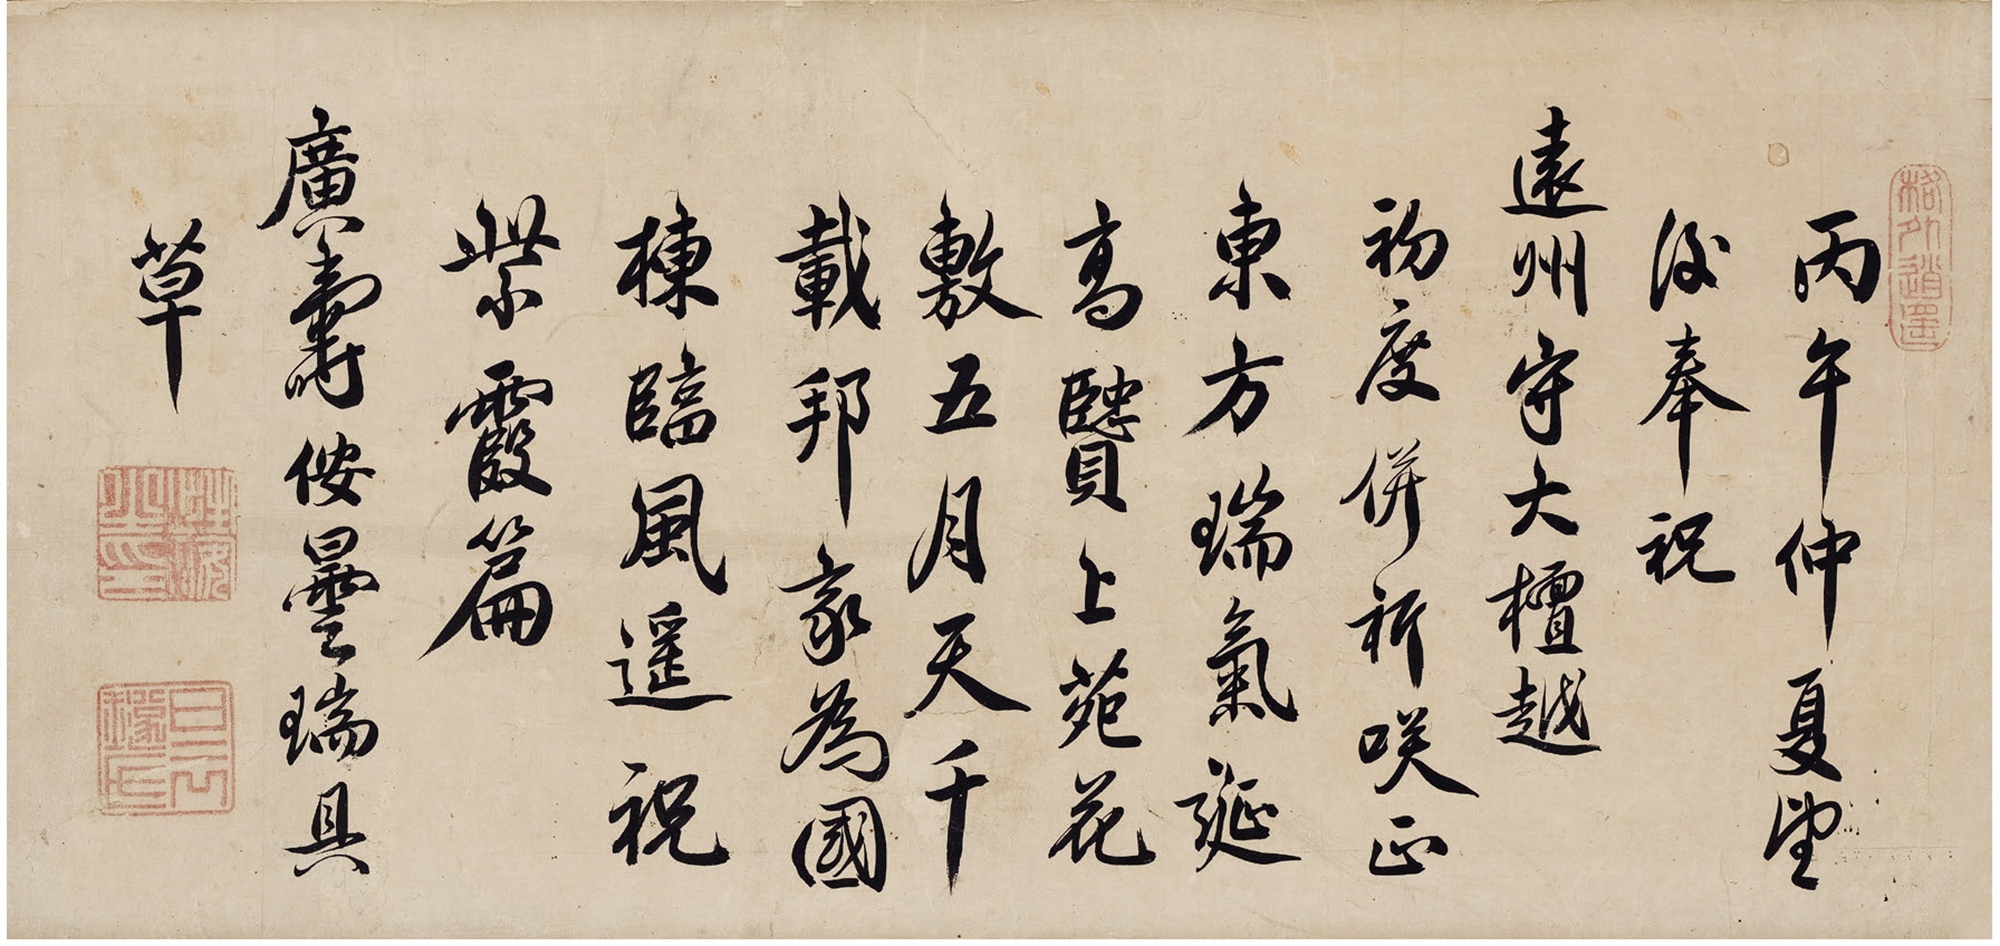 丙午仲夏望
後奉祝
遠州守大檀越
初度併祈咲正
東方瑞氣誕
高賢上苑花
敷五月天千
載邦家為國
棟臨風遥祝
紫霞篇
廣壽侒曇瑞具
草